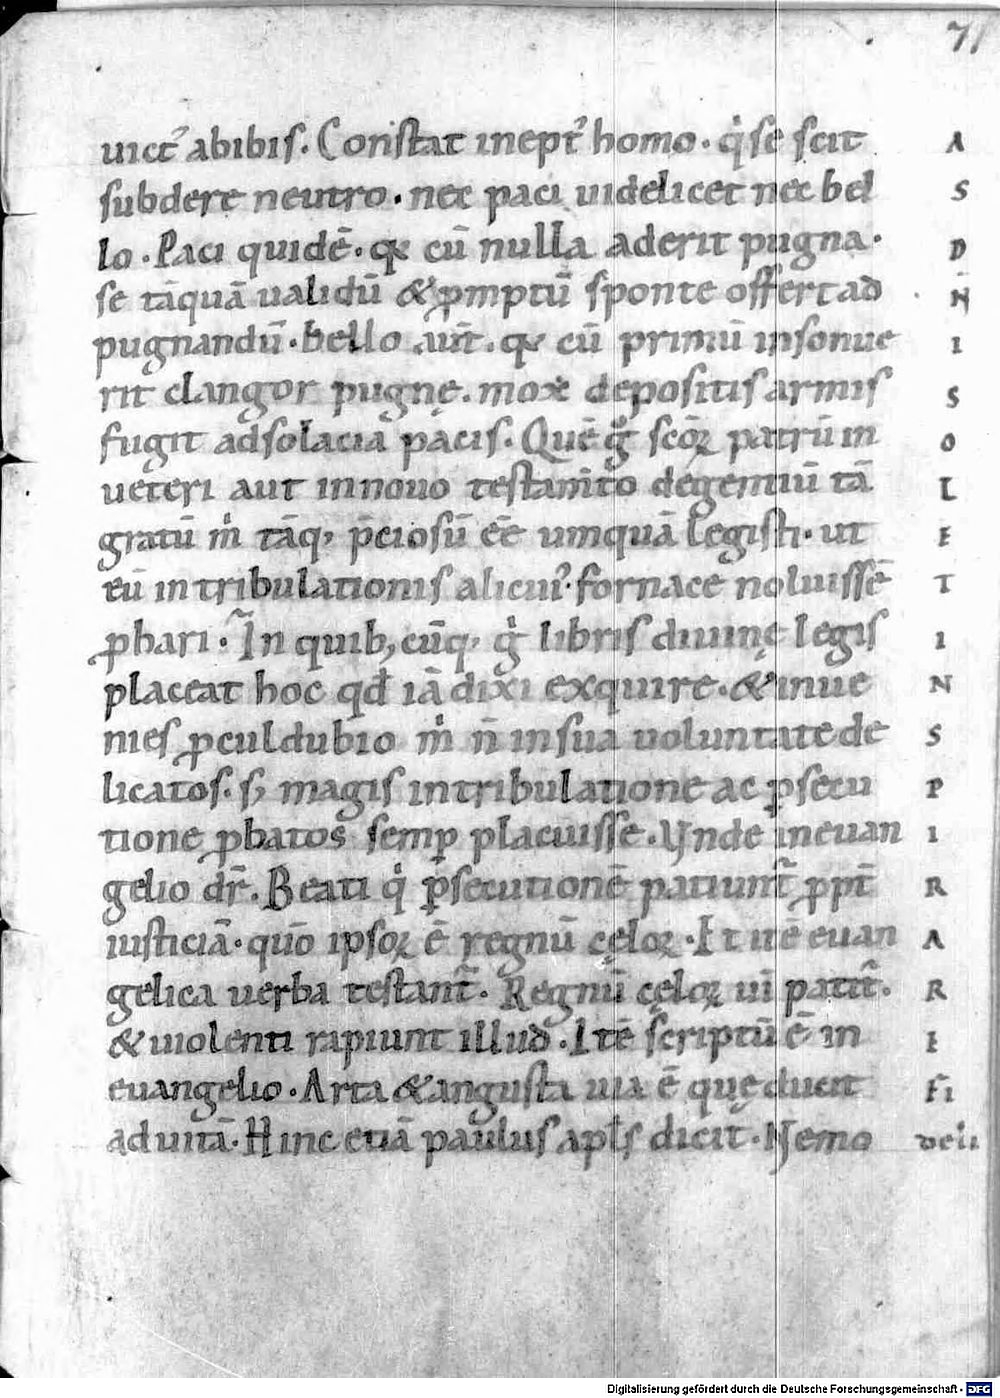 71
uict᷒ abibis. Constat inept᷒ homo. qͥ se scit
subdere neutro. nec paci uidelicet nec bel
lo. Paci quidē. qꝛ cū nulla aderit pugna.
se tāquā ualidū & ꝓmptū sponte offert ad
pugnandū. bello aūt. qꝛ cū primū insonue
rit clangor pugnę. mox depositis armis
fugit ad solacia pacis. Quē gͦ scōꝝ patrū in
ueteri aut in nouo testam̄to degentiū tā
gratū m̊ tāq; p̄ciosū eē umquā legisti. ut
eū in tribulationis alicui᷒ fornace noluissē
ꝓbari. In quib; cūq; gͦ libris diuinę legis
placeat hoc qđ iā dixi exquire. & inue
nies ꝓculdubio m̊ n̄ in sua uoluntate de
licatos. s; magis in tribulatione ac ꝑsecu
tione ꝓbatos semꝑ placuisse. Vnde in euan
gelio dr̄. Beati qͥ ꝑsecutionē patiunt᷑ ꝓpt̄
iusticiā. qūo ipsoꝝ ē regnū cęloꝝ. Et itē euan
gelica uerba testant᷑. Regnū cęloꝝ uī patit᷑.
& uiolenti rapiunt illud. Itē scriptū ē in
euangelio. Arta & angusta uia ē quę ducit
ad uitā. Hinc etiā paulus apl̄s dicit. Nemo
A
S
D
N̄
I
S
O
L
E
T
I
N
S
P
I
R
A
R
E
fi
deli
Digitalisierung gefördert durch die Deutsche Forschungsgemeinschaft - DFG